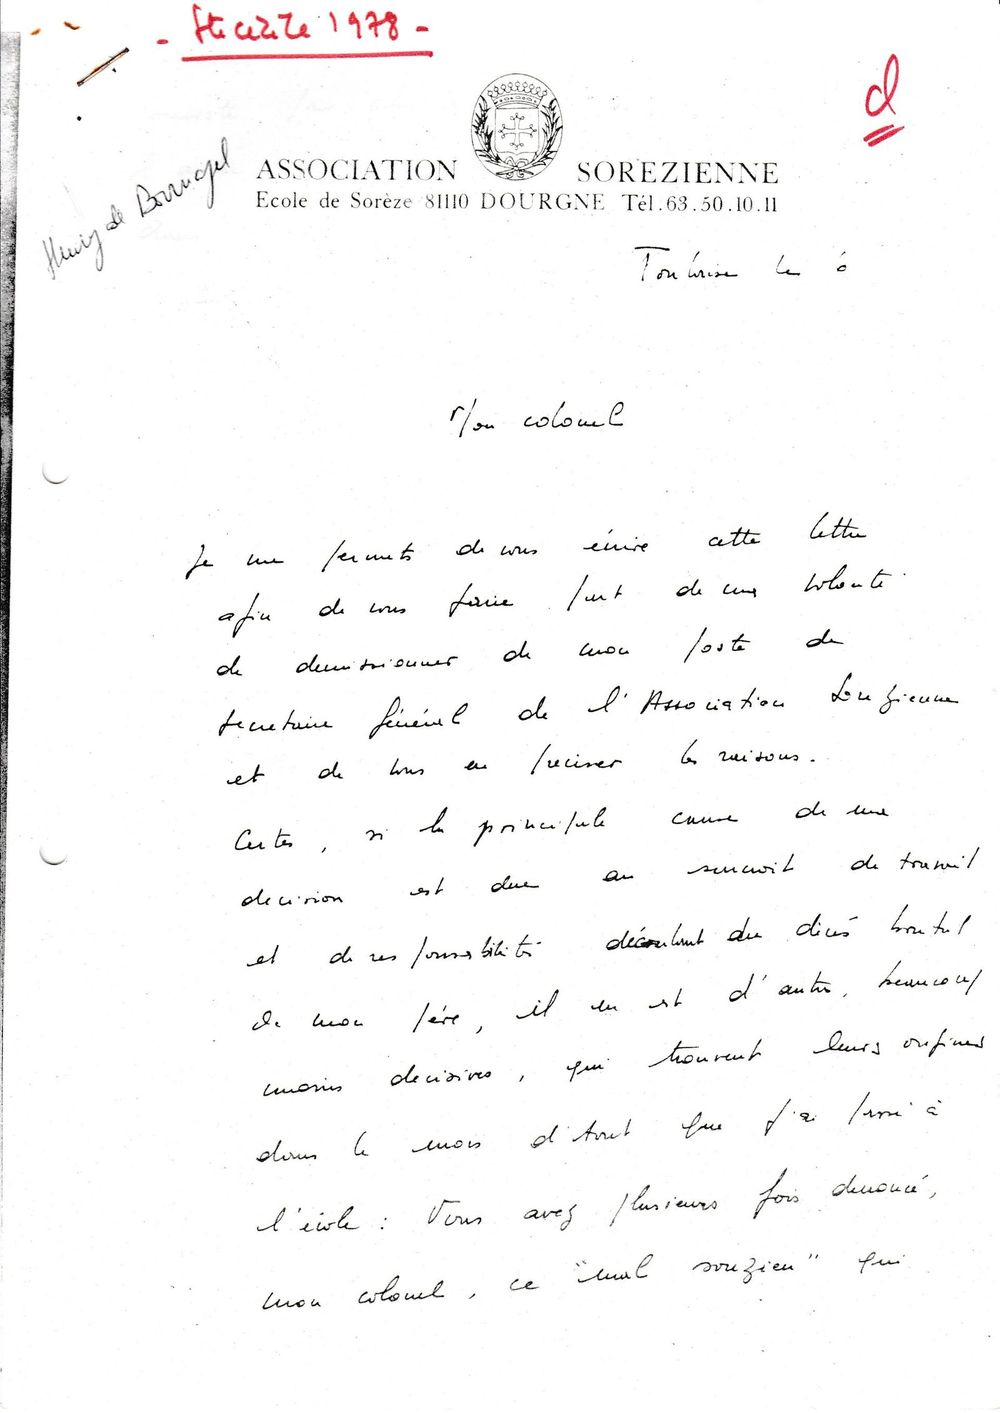 - Ste Cécile 1978 -
d
ASSOCIATION SOREZIENNE
Ecole de Sorèze 81110 DOURGNE Tél. 63.50.10.11
Henry de Bournazel
Toulouse le 6
Mon colonel
Je me permets de vous écrire cette lettre
afin de vous faire part de ma volonté
de demissionner de mon poste de
secretaire général de l'Association Sorezienne
et de vous en preciser les raisons.
Certes, si la principale cause de ma
decision est due au surcroit de travail
et de responsabilités découlant du décés brutal
de mon père, il en est d'autres, beaucoup
moins decisives, qui trouvent leurs origines
dans le mois d'Aout que j'ai passé à
l'école : Vous avez plusieurs fois denoncé,
mon colonel, ce "mal sorezien" qui